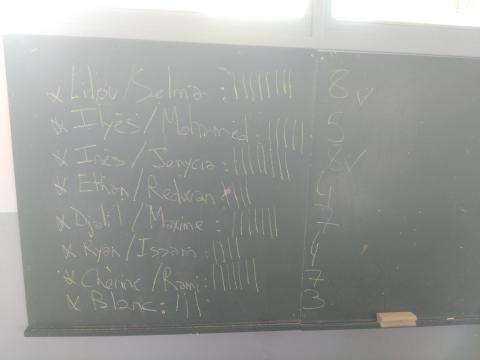 x Lilou/Selma : |||||||| 8 ✓
x Ilyès/Mohamed : ||||| 5
x Inès/Jenycia : |||||||| 8 ✓
x Ethan/Redwan : |||| 4
x Djalil/Maxime : ||||||| 7
x Ryan/Issam : |||| 4
x Chérine/Rami : ||||||| 7
x Blanc : ||| 3